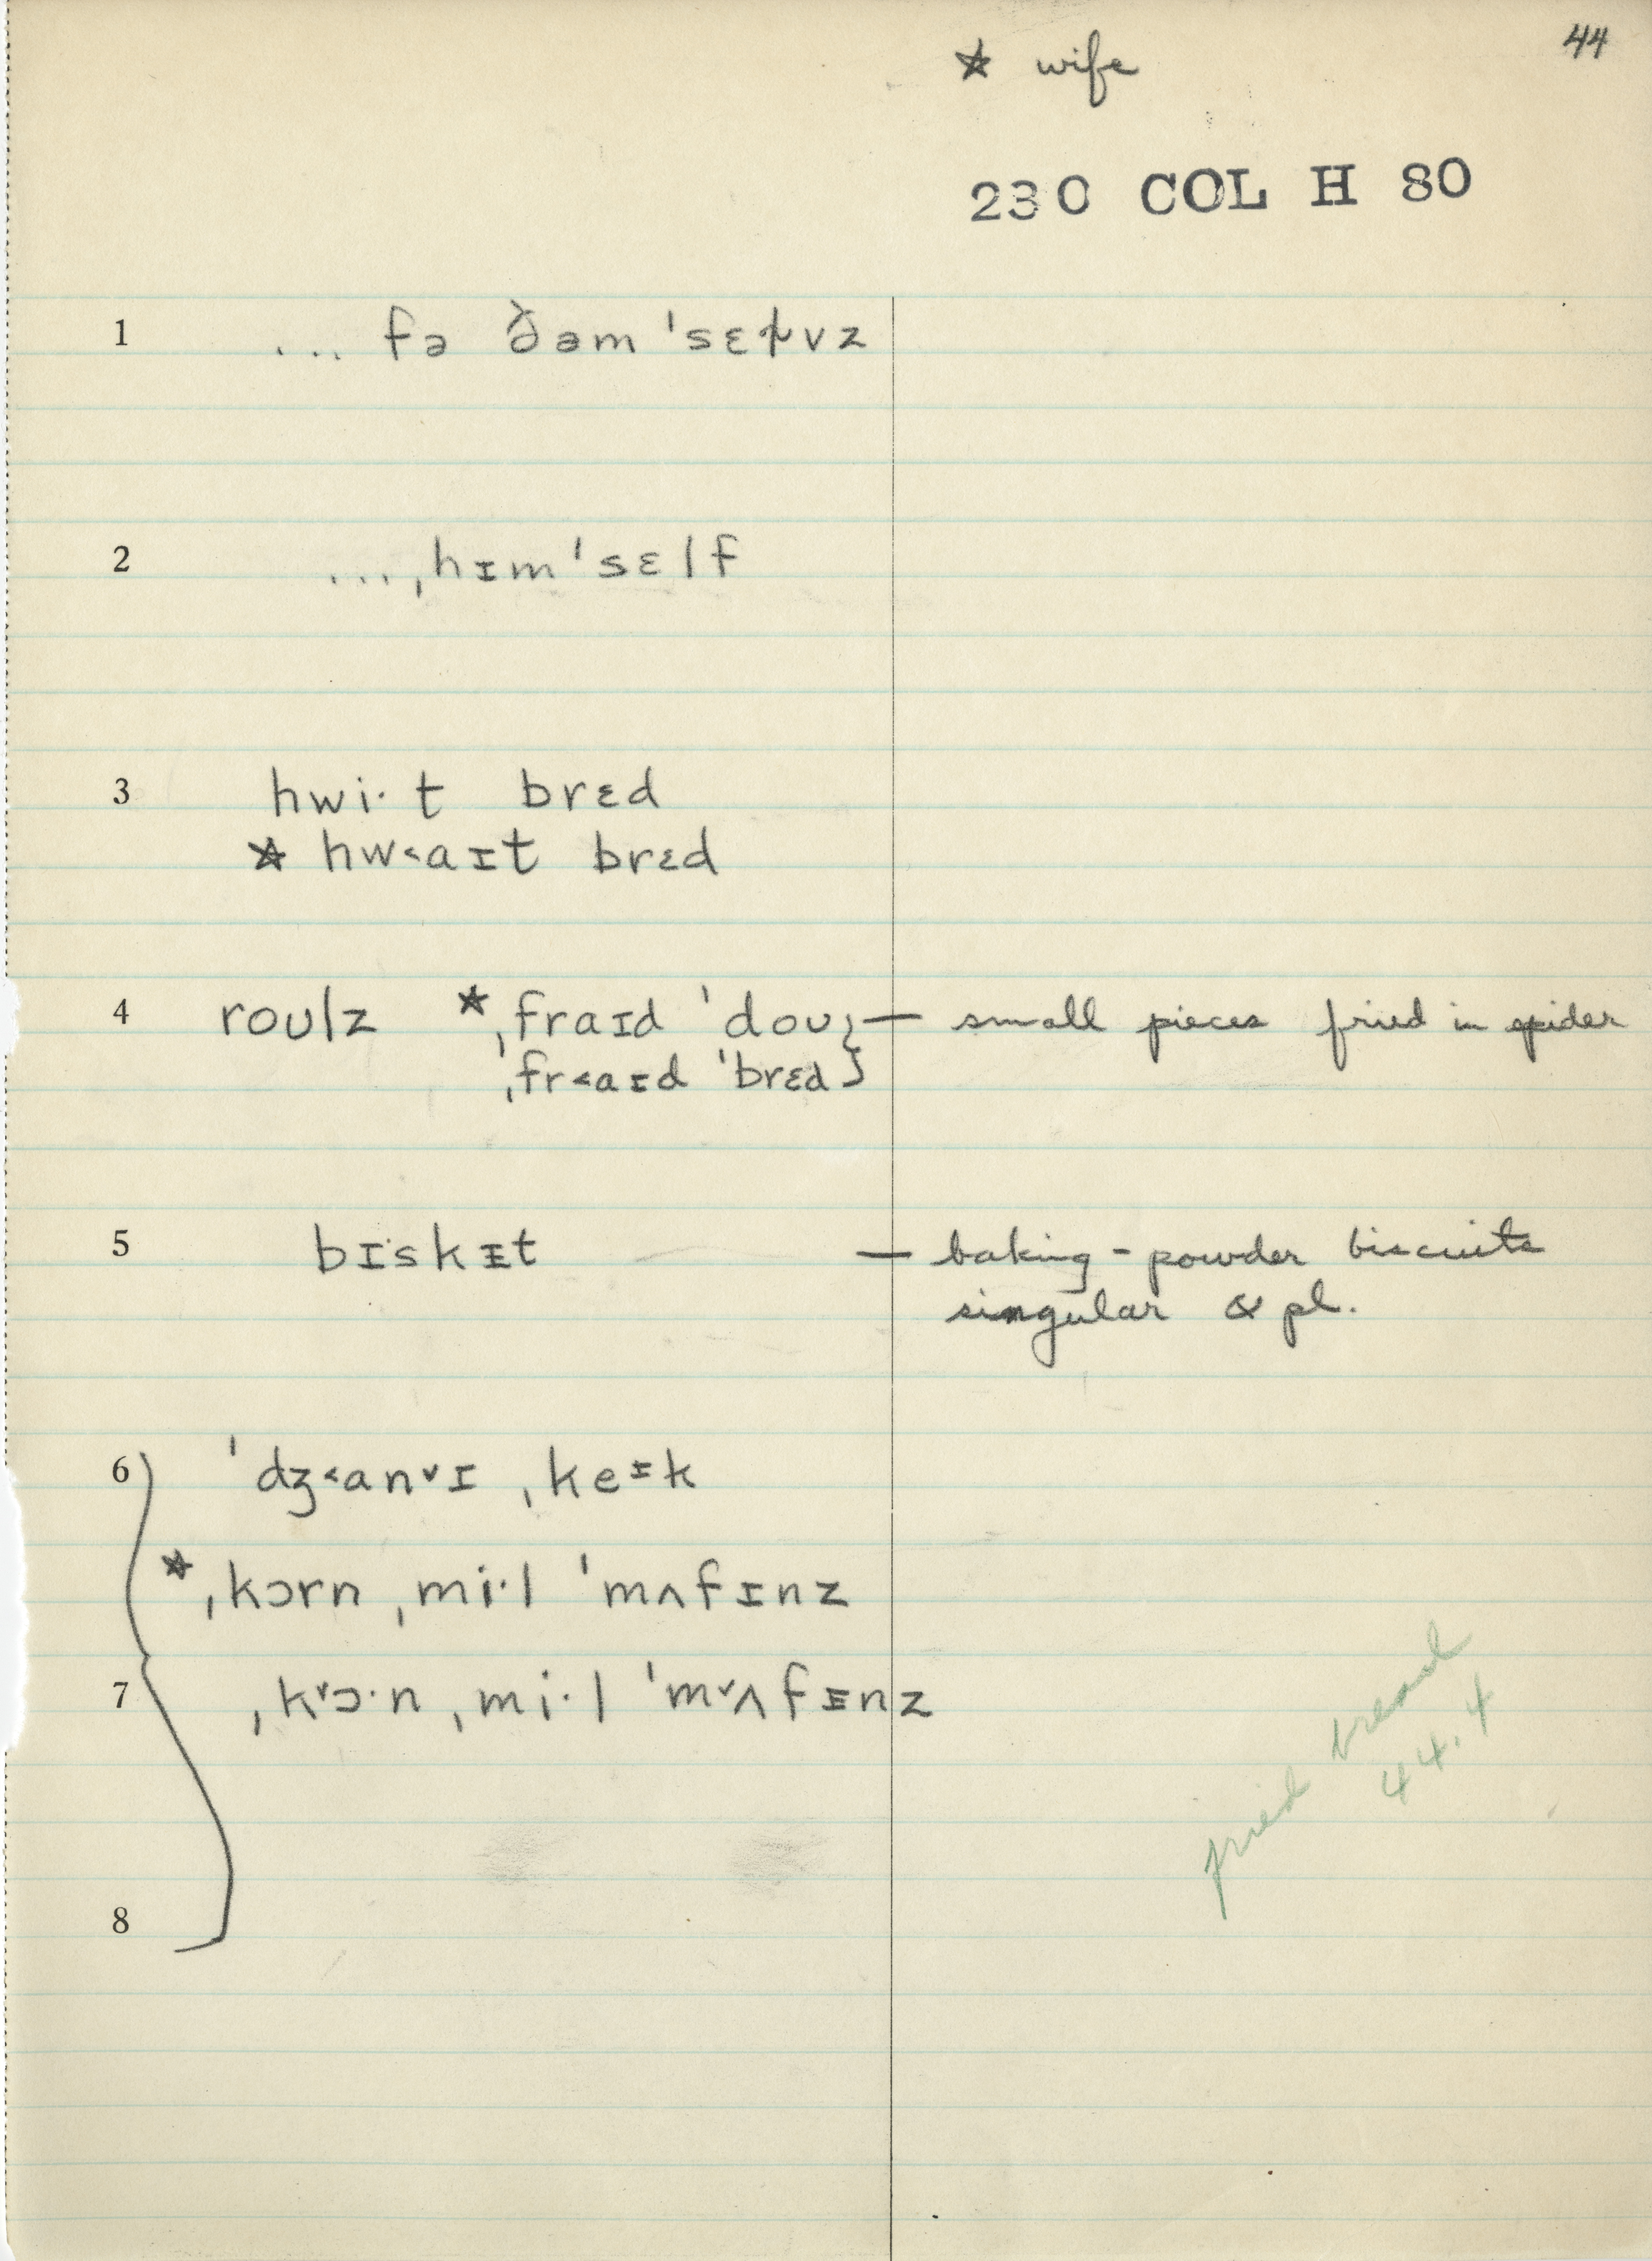 44
* wife
230 COL H 80
1 ... fə ðəm ˈsɛɫvz
2 ... ˌhɪm ˈsɛlf
3 hwi·t brɛd
* hw˂aɪt brɛd
4 roʊlz * ˌfraɪd ˈdoʊ } — small pieces fried in spider
ˌfr˂aɪd ˈbrɛd }
5 bɪskɪt — baking-powder biscuits
singular & pl.
6 ˈdʒ˂anᵛɪ ˌkeɪk
* ˌkɔrn ˌmi·l ˈmʌfɪnz
7 ˌkᵛɔ·n ˌmi·l ˈmᵛʌfɪnz
fried bread
44.4
8